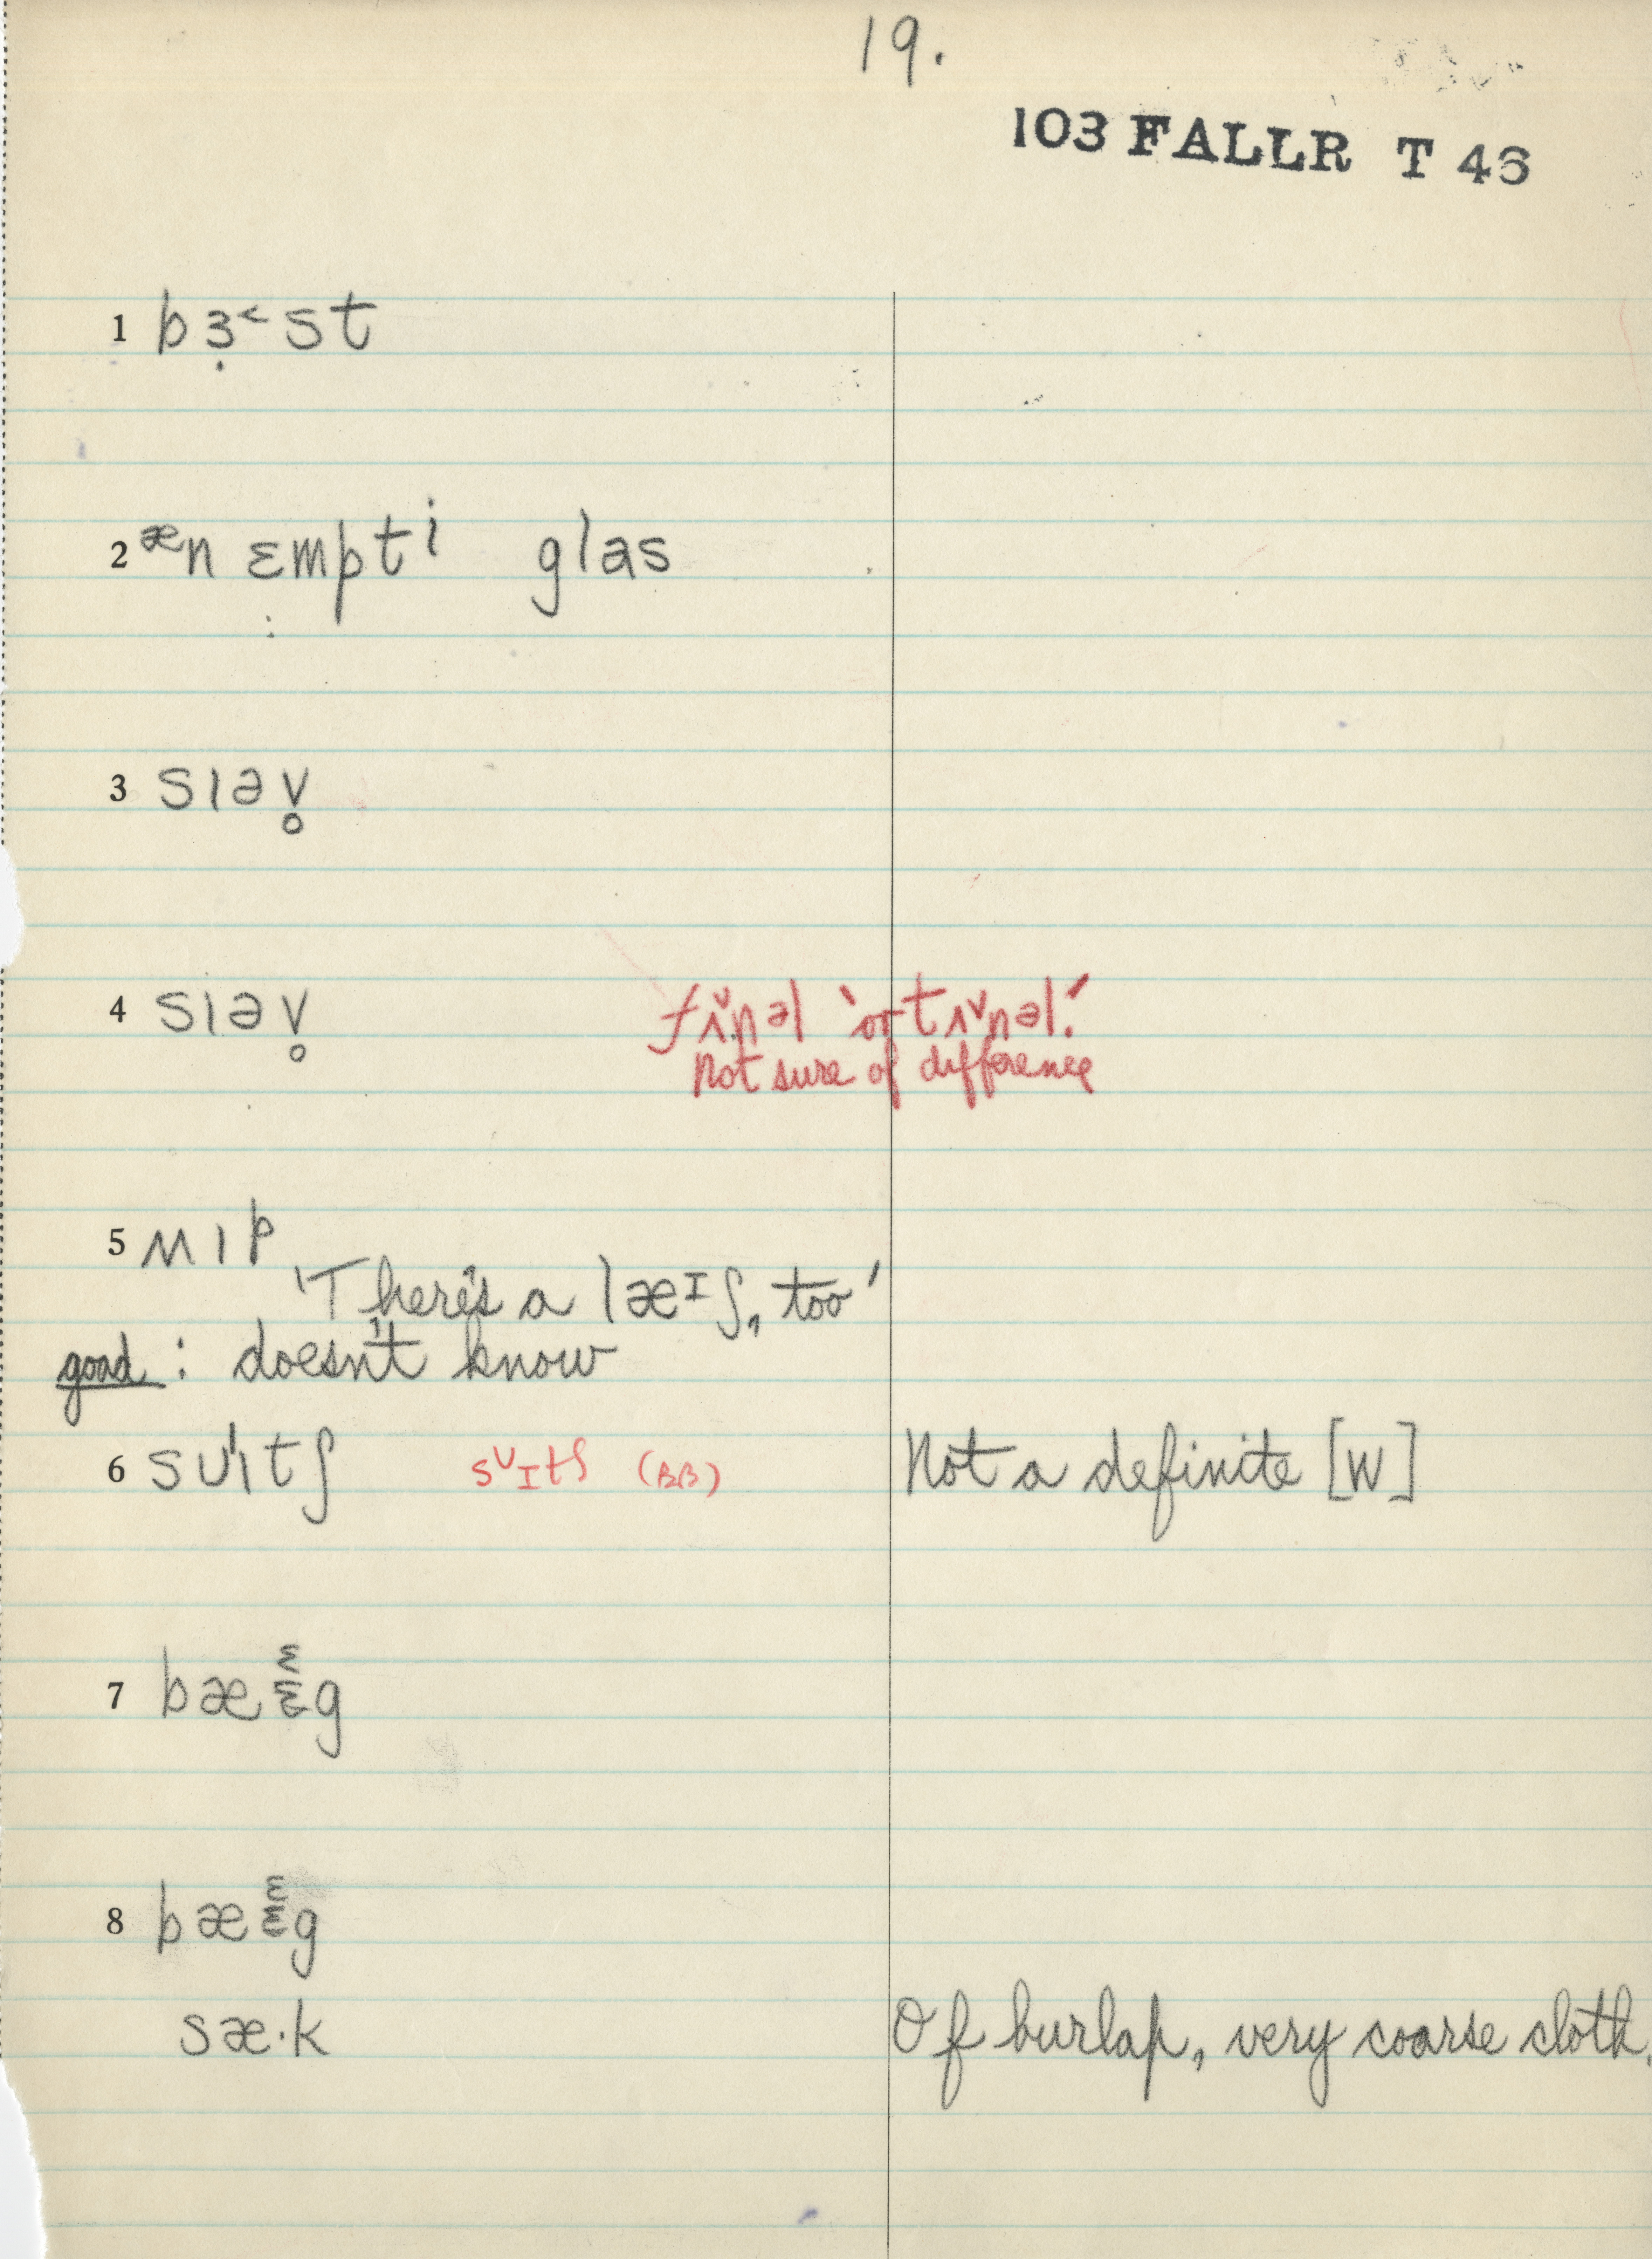 19.
103 FALLR T 46
1 bɜ̣˂st
2 ᵆn ɛmptⁱ glas
3 sıəv̥
4 sıəv̥
fʌ̌ɪnəl 'or tʌɪ̌nəl.'
Not sure of difference
5 ʍıp
'There's a læᶦʃ, too'
goad: doesn't know
6 sᴜ'ıtʃ sᶸɪtʃ (BB) Not a definite [w]
7 bæɛ̯g
8 bæɛ̯g
sæ·k Of burlap, very coarse cloth.